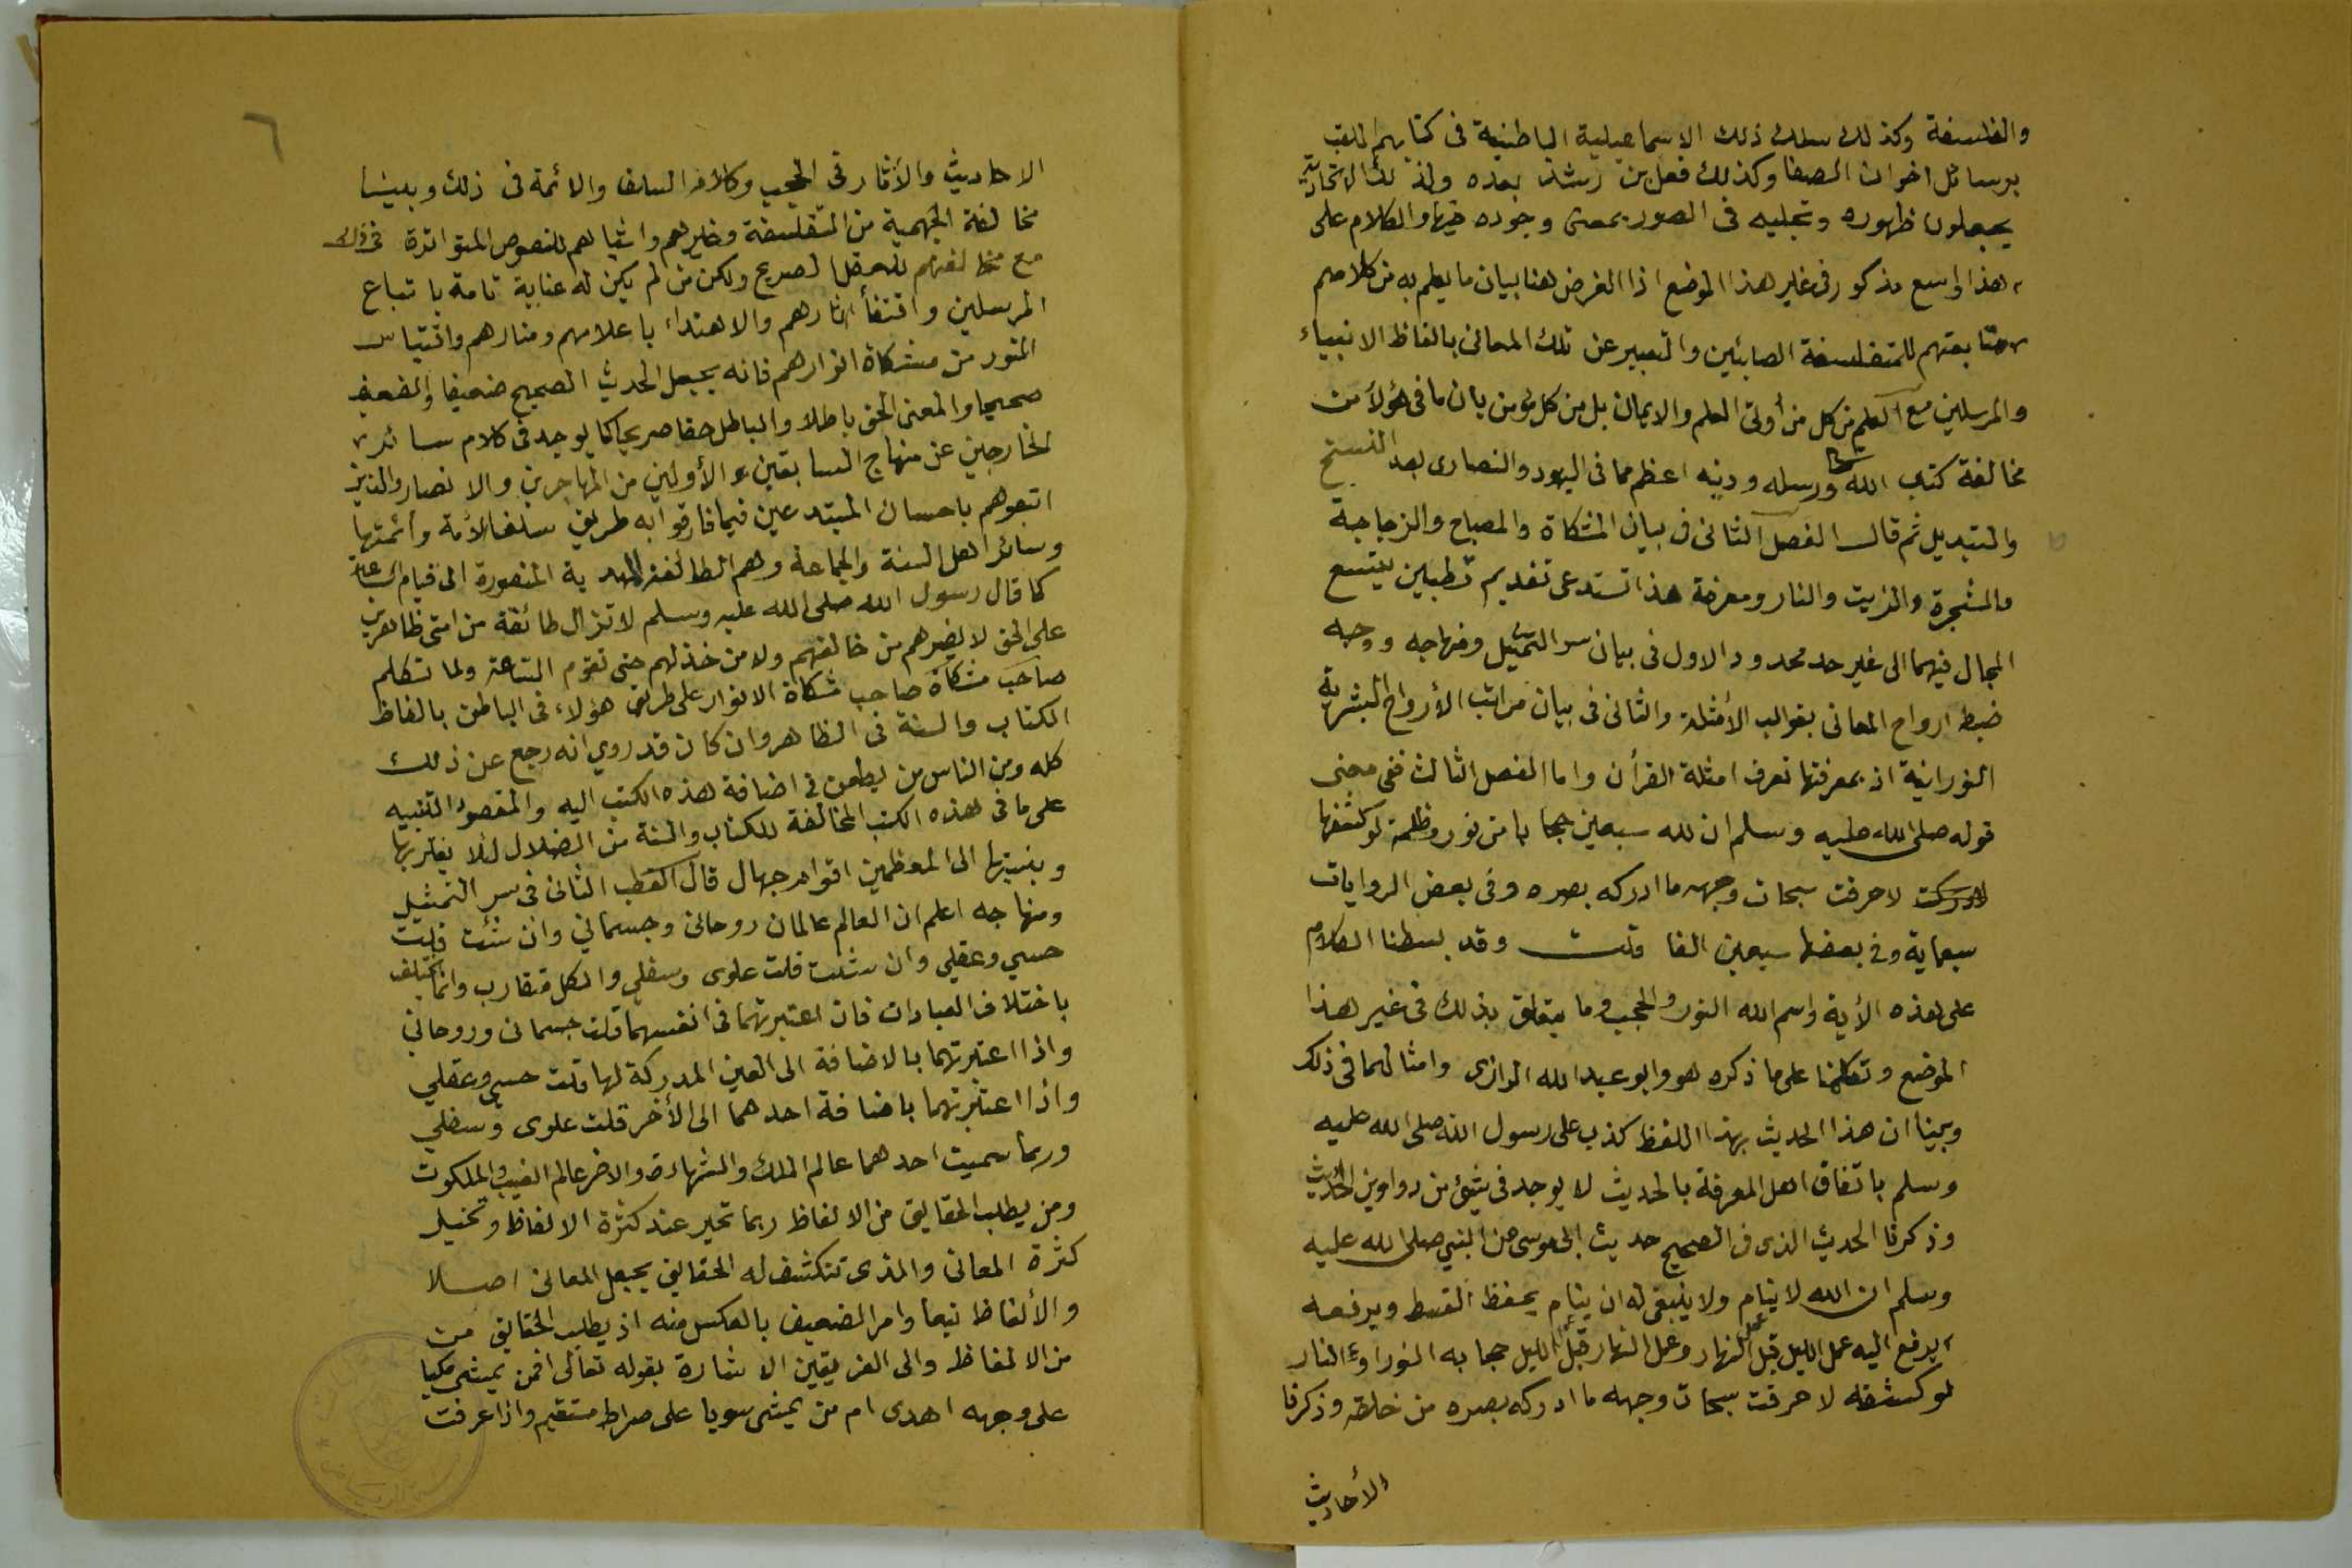 والفلسفة وكذلك سلك ذلك الاسماعيلية الباطنية فى كتابهم الملقب
برسائل اخوان الصفا وكذلك فعل بن رشد بعده وكذلك الاتحادية
يجعلون ظهوره وتجليه فى الصور بمعنى وجوده فيها والكلام على
هذا واسع مذكور فى غير هذا الموضع اذا الغرض هنا بيان ما يعلم به من كلامهم
متابعتهم للمتفلسفة الصابئين والتعبير عن تلك المعانى بالفاظ الانبياء
والمرسلين مع العلم من كل من أوتى العلم والايمان بل من كل مؤمن بان ما فى هؤلأ من
مخالفة كتب الله ورسله ودينه اعظم مما فى اليهود والنصارى بعد النسخ
والتبديل ثم قال الفصل الثانى فى بيان المشكاة والمصباح والزجاجة
والشجرة والزيت والنار ومعرفة هذا تستدعى تقديم قطبين يتسع
المجال فيهما الى غير حد محدود الاول فى بيان سر التمثيل ومنهاجه ووجه
ضبط ارواح المعانى بقوالب الأمثلة والثانى فى بيان مراتب الأرواح البشرية
النورانية اذ بمعرفتها تعرف امثلة القرأن واما الفصل الثالث ففى معنى
قوله صلى الله عليه وسلم ان لله سبعين حجابا من نور وظلمة لو كشفها
لاحرقت سبحات وجهه ما ادركه بصره وفى بعض الروايات
سبعماية وفى بعضها سبعين الفا قلت وقد بسطنا الكلام
على هذه الأية واسم الله النور والحجب وما يتعلق بذلك فى غير هذا
الموضع وتكلمنا على ما ذكره هو وابو عبد الله الرازى وامثالهما فى ذلك
وبينا ان هذا الحديث بهذا اللفظ كذب على رسول الله صلى الله عليه
وسلم باتفاق اهل المعرفة بالحديث لا يوجد فى شئ من دواوين الحديث
وذكرنا الحديث الذى فى الصحيح حديث ابى موسى عن النبي صلى الله عليه
وسلم ان الله لا ينام ولا ينبغى له ان ينام يخفظ القسط ويرفعه
يرفع اليه عمل الليل قبل عمل النهار وعمل النهار قبل الليل حجابه النور او النار
لو كشفه لاحرقت سبحات وجهه ما ادركه بصره من خلقه وذكرنا
الأحاديث
٦
الاحاديث والأثار فى الحجب وكلام السلف والائمة فى ذلك وبينا
مخالفة الجهمية من المتفلسفة وغيرهم واشباههم للنصوص المتواترة فى ذلك
مع مخالفتهم للعقل الصريح ولكن من لم يكن له عناية تامة باتباع
المرسلين واقتفأ اثارهم والاهتداء باعلامهم ومنارهم واقتباس
النور من مشكاة انوارهم فانه يجعل الحديث الصحيح ضعيفا والضعيف
صحيحا والمعنى الحق باطلا والباطل حقا صريحا كما يوجد فى كلام سائر
الخارجين عن منهاج السابقين الأولين من المهاجرين والانصار والذين
اتبعوهم باحسان المبتدعين فيما فارقوا به طريق سلف الأمة وأئمتها
وسائر اهل السنة والجماعة وهم الطائفة المهدية المنصورة الى قيام الساعة
كما قال رسول الله صلى الله عليه وسلم لا تزال طائفة من امتى ظاهرين
على الحق لا يضرهم من خالفهم ولا من خذلهم حتى تقوم الساعة ولما تكلم
صاحب مشكاة صاحب مشكاة الانوار على طريق هؤلاء فى الباطن بالفاظ
الكتاب والسنة فى الظاهر وان كان قد روي انه رجع عن ذلك
كله ومن الناس من يطعن فى اضافة هذه الكتب اليه والمقصود التنبيه
على ما فى هذه الكتب المخالفة للكتاب والسنة من الضلال لئلا يغتر بها
وبنسبتها الى المعظمين اقوام جهال قال القطب الثانى فى سر التمثيل
ومنهاجه اعلم ان العالم عالمان روحانى وجسماني وان شئت قلت
حسي وعقلي وان شئت قلت علوى وسفلي والكل متقارب وانما يختلف
باختلاف العبارات فان اعتبرتهما فى انفسهما قلت جسمانى وروحاني
واذا اعتبرتهما بالاضافة الى العين المدركة لها قلت حسي وعقلي
واذا اعتبرتهما باضافة احدهما الى الأخر قلت علوى وسفلي
وربما سميت احدهما عالم الملك والشهادة والاخر عالم الغيب والملكوت
ومن يطلب الحقايق من الالفاظ ربما تحير عند كثرة الالفاظ وتخيل
كثرة المعانى والذى تنكشف له الحقايق يجعل المعانى اصلا
والألفاظ تبعا وامر الضعيف بالعكس منه اذ يطلب الحقايق من
من الالفاظ والى الفريقين الاشارة بقوله تعالى افمن يمشي مكبا
على وجهه اهدى ام من يمشى سويا على صراط مستقيم واذا عرفت